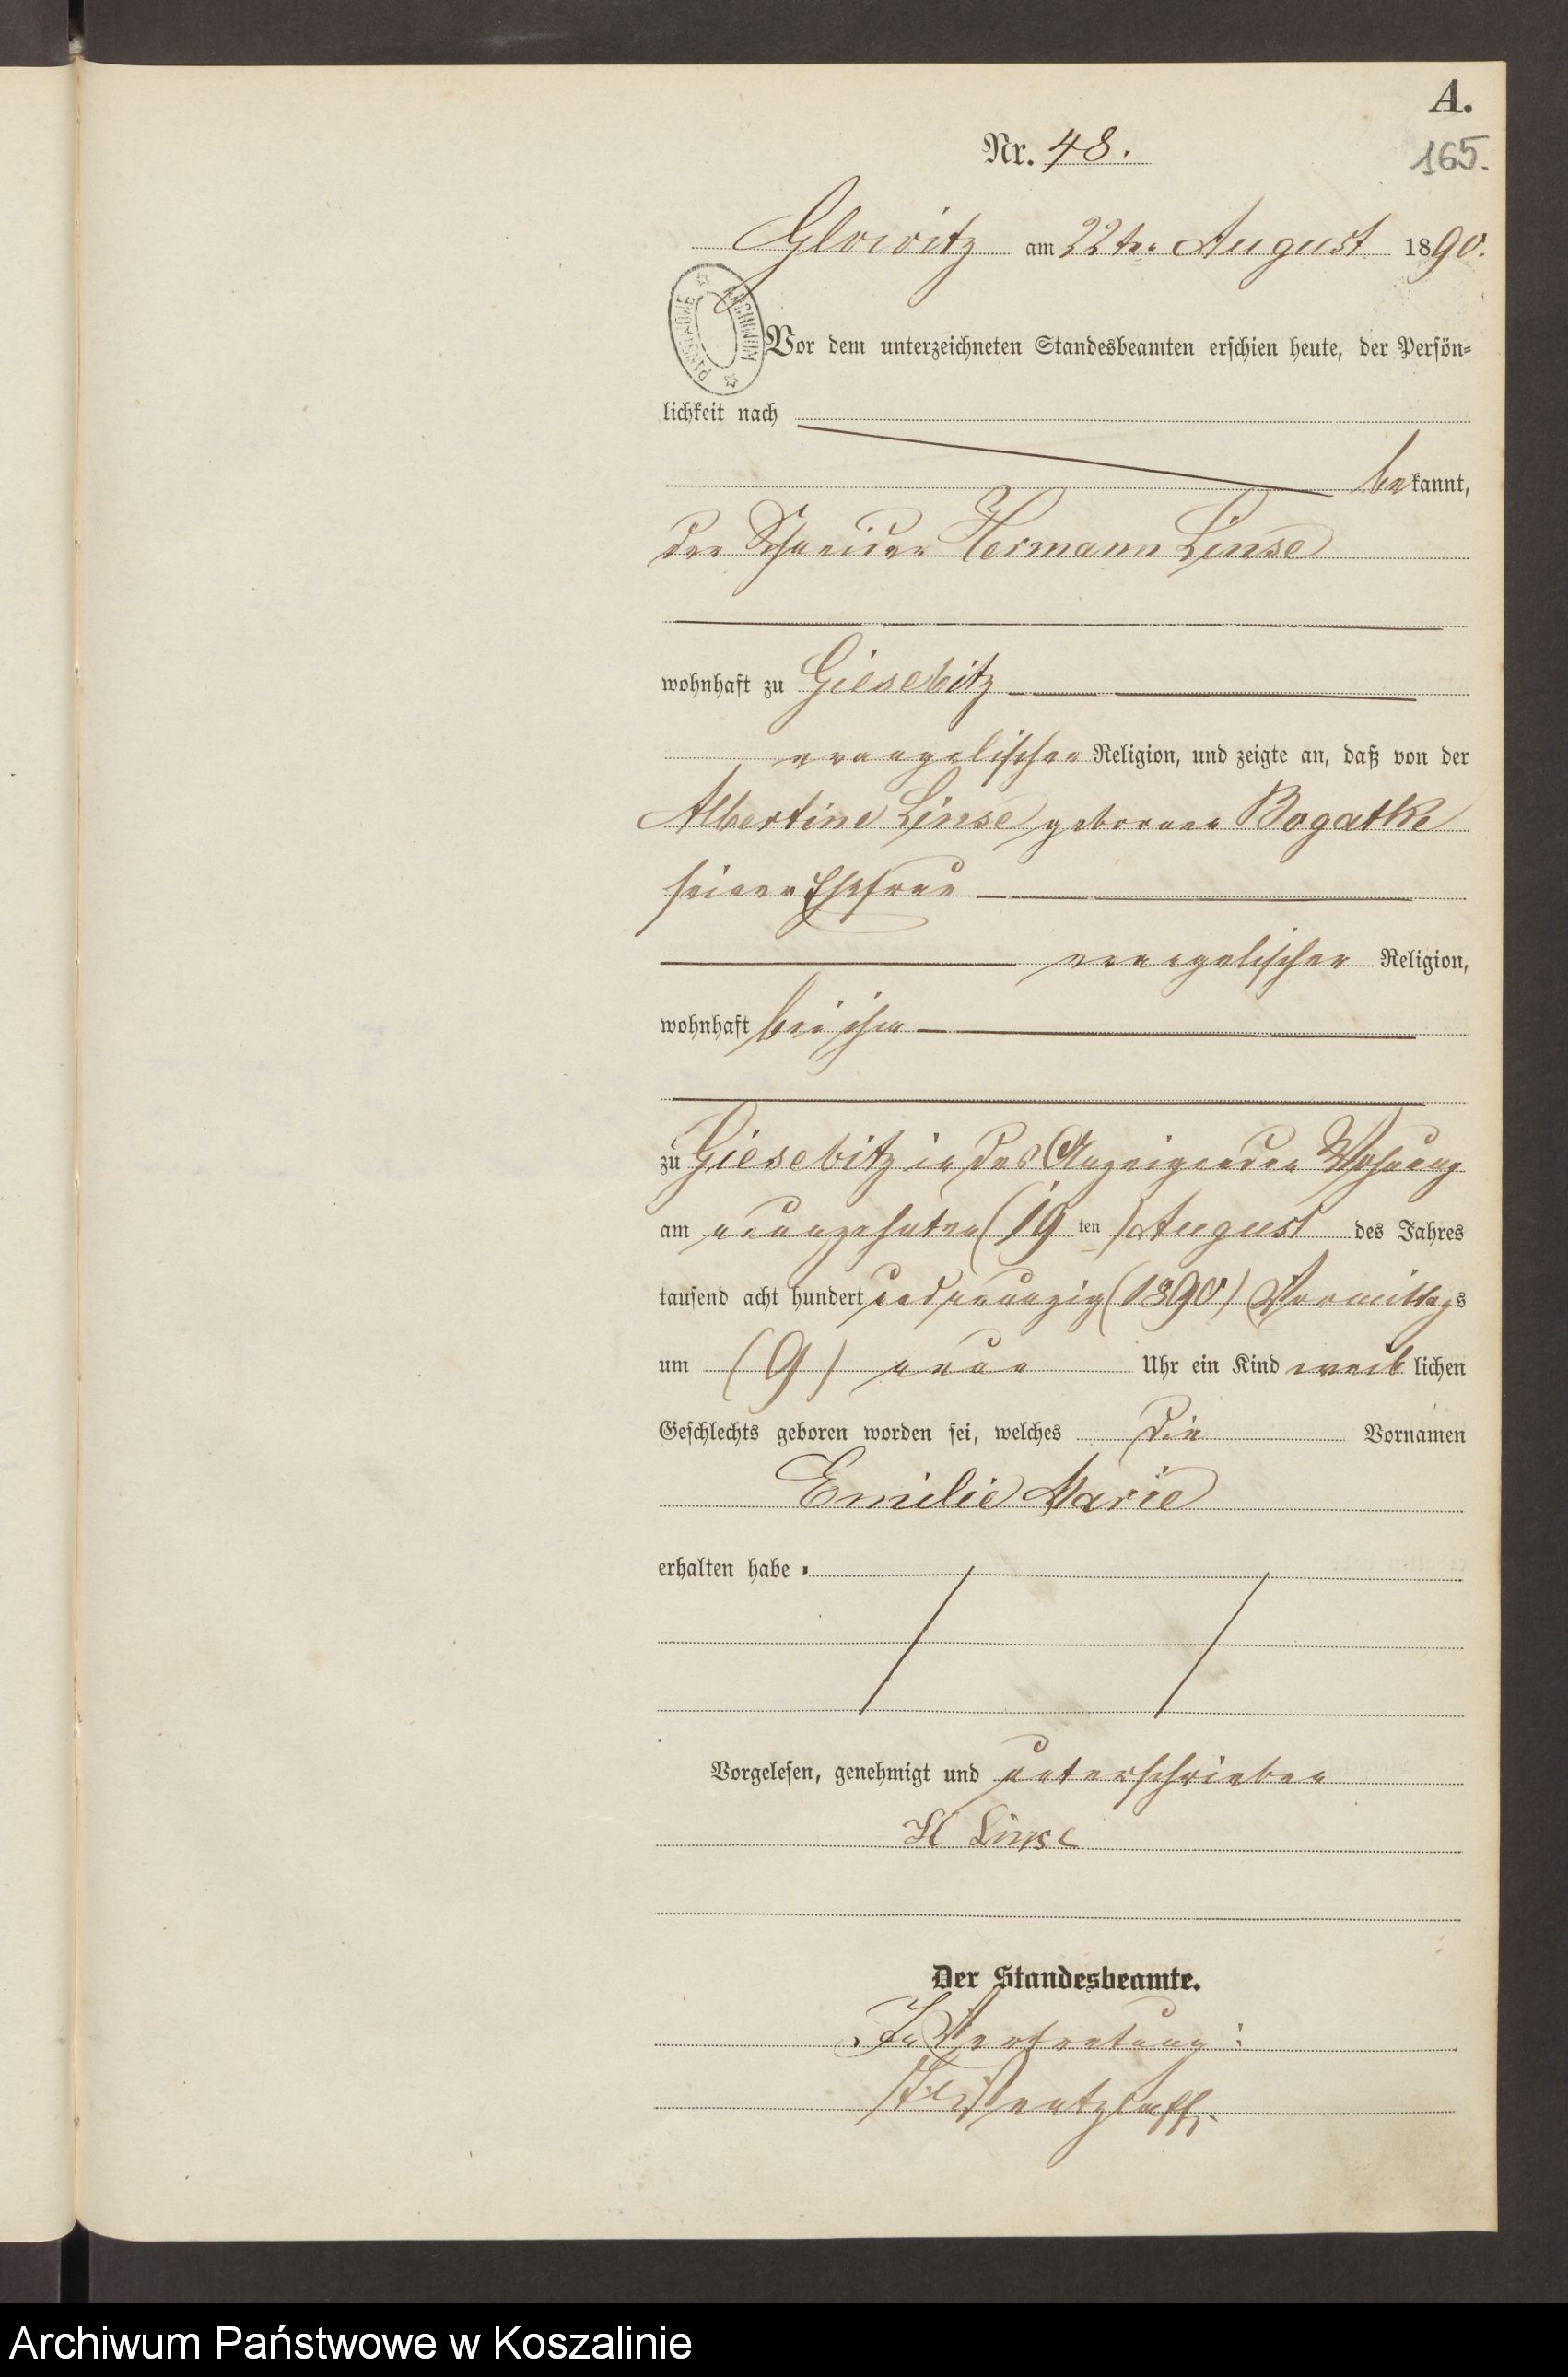 A.
Nr. 48.
165.
Glowitz am 22ten August 1890.
ARCHIWUM PAŃSTWOWE
Vor dem unterzeichneten Standesbeamten erschien heute, der Persön-
lichkeit nach
bekannt,
der Schneider Hermann Linse
wohnhaft zu Giesebitz
evangelischer Religion, und zeigte an, daß von der
Albertine Linse geborner Bogatke
seiner Ehefrau
evangelischer Religion,
wohnhaft bei ihm
zu Giesebitz in des Anzeigenden Wohnung
am neunzehnten (19 ten) August des Jahres
tausend acht hundert und neunzig (1890) Vormittags
um (9) neun Uhr ein Kind weiblichen
Geschlechts geboren worden sei, welches die Vornamen
Emilie Marie
erhalten habe.
Vorgelesen, genehmigt und unterschrieben
H Linse
Der Standesbeamte.
In Vertretung:
Archiwum Państwowe w Koszalinie